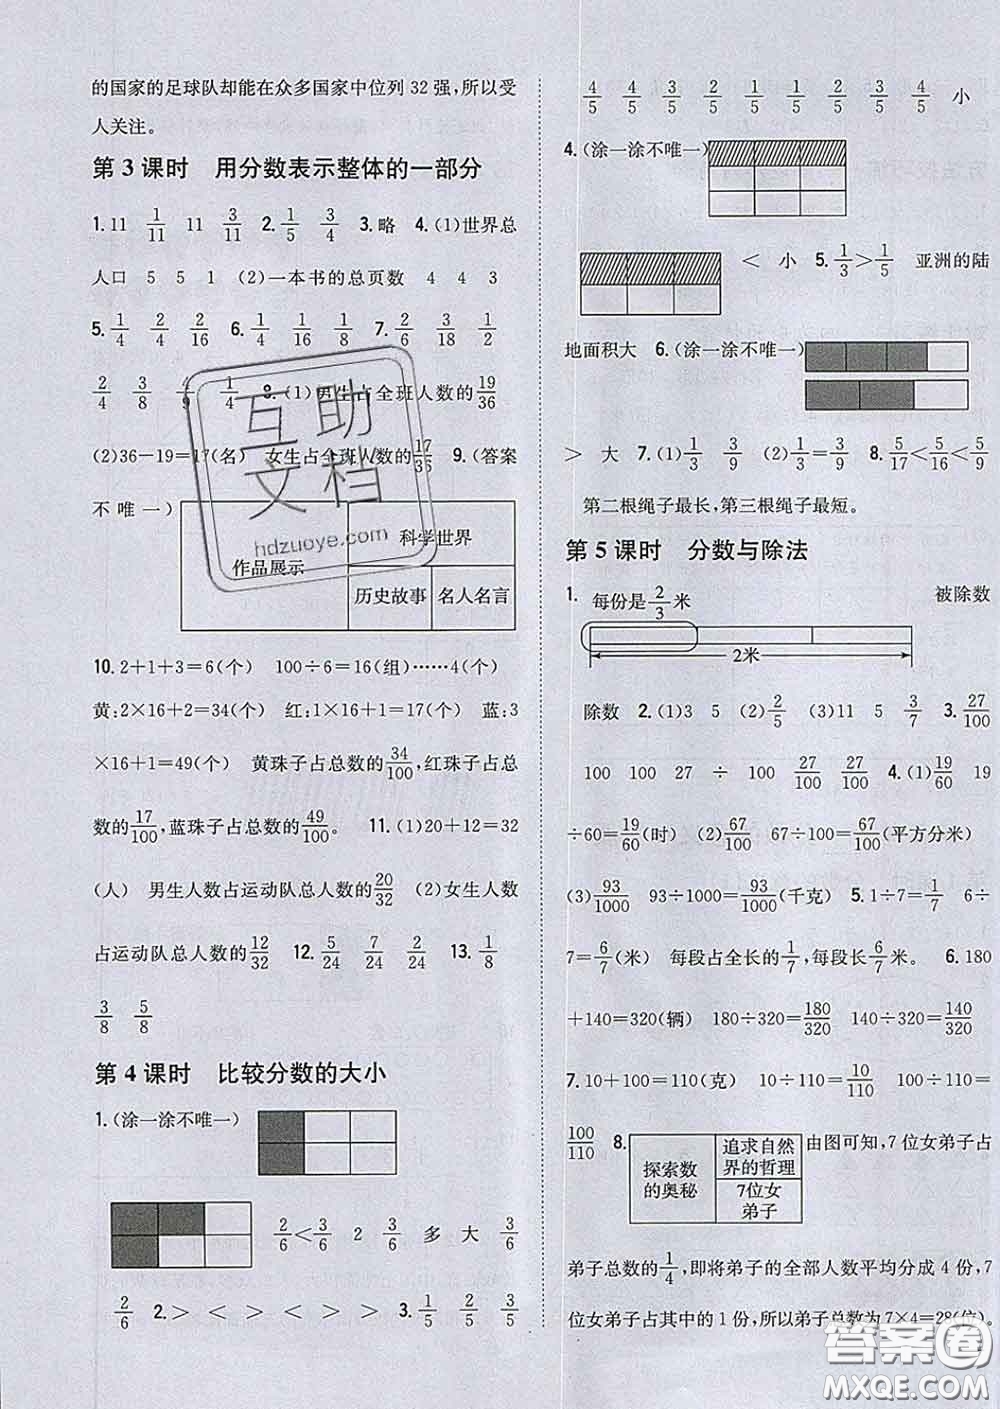 的国家的足球队却能在众多国家中位列 32 强,所以受
人关注。
第 3 课时 用分数表示整体的一部分
1. 11 1/11 11 3/11 2. 1/5 3/4 3. 略 4. (1)世界总
人口 5 5 1 (2)一本书的总页数 4 4 3
5. 1/4 2/4 2/16 6. 1/4 1/16 1/8 7. 2/6 3/18 1/2
2/4 3/8 /9 1/4 8. (1)男生占全班人数的19/36
(2)36-19=17(名) 女生占全班人数的17/36 9. (答案
不唯一)
科学世界
作品展示
历史故事 名人名言
10. 2+1+3=6(个) 100÷6=16(组)……4(个)
黄:2×16+2=34(个) 红:1×16+1=17(个) 蓝:3
×16+1=49(个) 黄珠子占总数的34/100,红珠子占总
数的17/100,蓝珠子占总数的49/100。 11. (1)20+12=32
(人) 男生人数占运动队总人数的20/32 (2)女生人数
占运动队总人数的12/32 12. 5/24 7/24 2/24 13. 1/8
3/8 5/8
第 4 课时 比较分数的大小
1. (涂一涂不唯一)
2/6<3/6 2 3 多 大 3/6
2/6 2. > < < > > 3. 1/5 2/5 3/5
4/5 4/5 3/5 2/5 1/5 2/5 3/5 4/5 小
4. (涂一涂不唯一)
< 小 5. 1/3>1/5 亚洲的陆
地面积大 6. (涂一涂不唯一)
> 大 7. (1)1/3 3/9 (2)1/3=3/9 8. 5/17<5/16<5/9
第二根绳子最长,第三根绳子最短。
第 5 课时 分数与除法
1. 每份是2/3米 被除数
2米
除数 2. (1)3 5 (2)2/5 (3)11 5 3/7 3. 27/100
100 100 27 ÷ 100 27/100 27/100 4. (1)19/60 19
÷60=19/60(时) (2)67/100 67÷100=67/100(平方分米)
(3)93/1000 93÷1000=93/1000(千克) 5. 1÷7=1/7 6÷
7=6/7(米) 每段占全长的1/7,每段长6/7米。 6. 180
+140=320(辆) 180÷320=180/320 140÷320=140/320
7. 10+100=110(克) 10÷110=10/110 100÷110=
100/110 8.
探索数的奥秘 追求自然界的哲理 7位女弟子
由图可知,7 位女弟子占
弟子总数的1/4,即将弟子的全部人数平均分成 4 份,7
位女弟子占其中的 1 份,所以弟子总数为 7×4=28(位)。
互助
文档
hdzuoye.com
答案圈
MXQE.COM